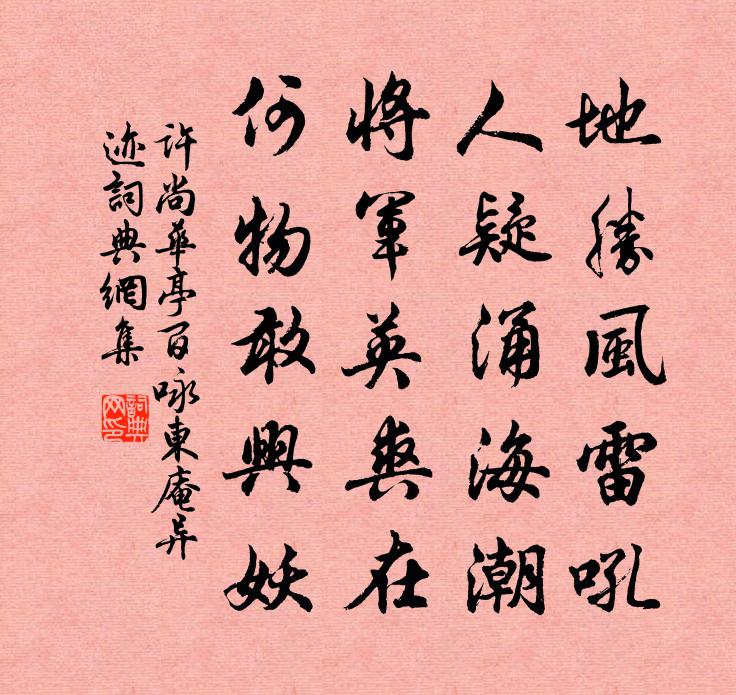 地勝風雷吼
人疑涌海潮
將軍英爽在
何物敢興妖
許尚華亭百咏東庵异
迹詞典網集
詞典
网印